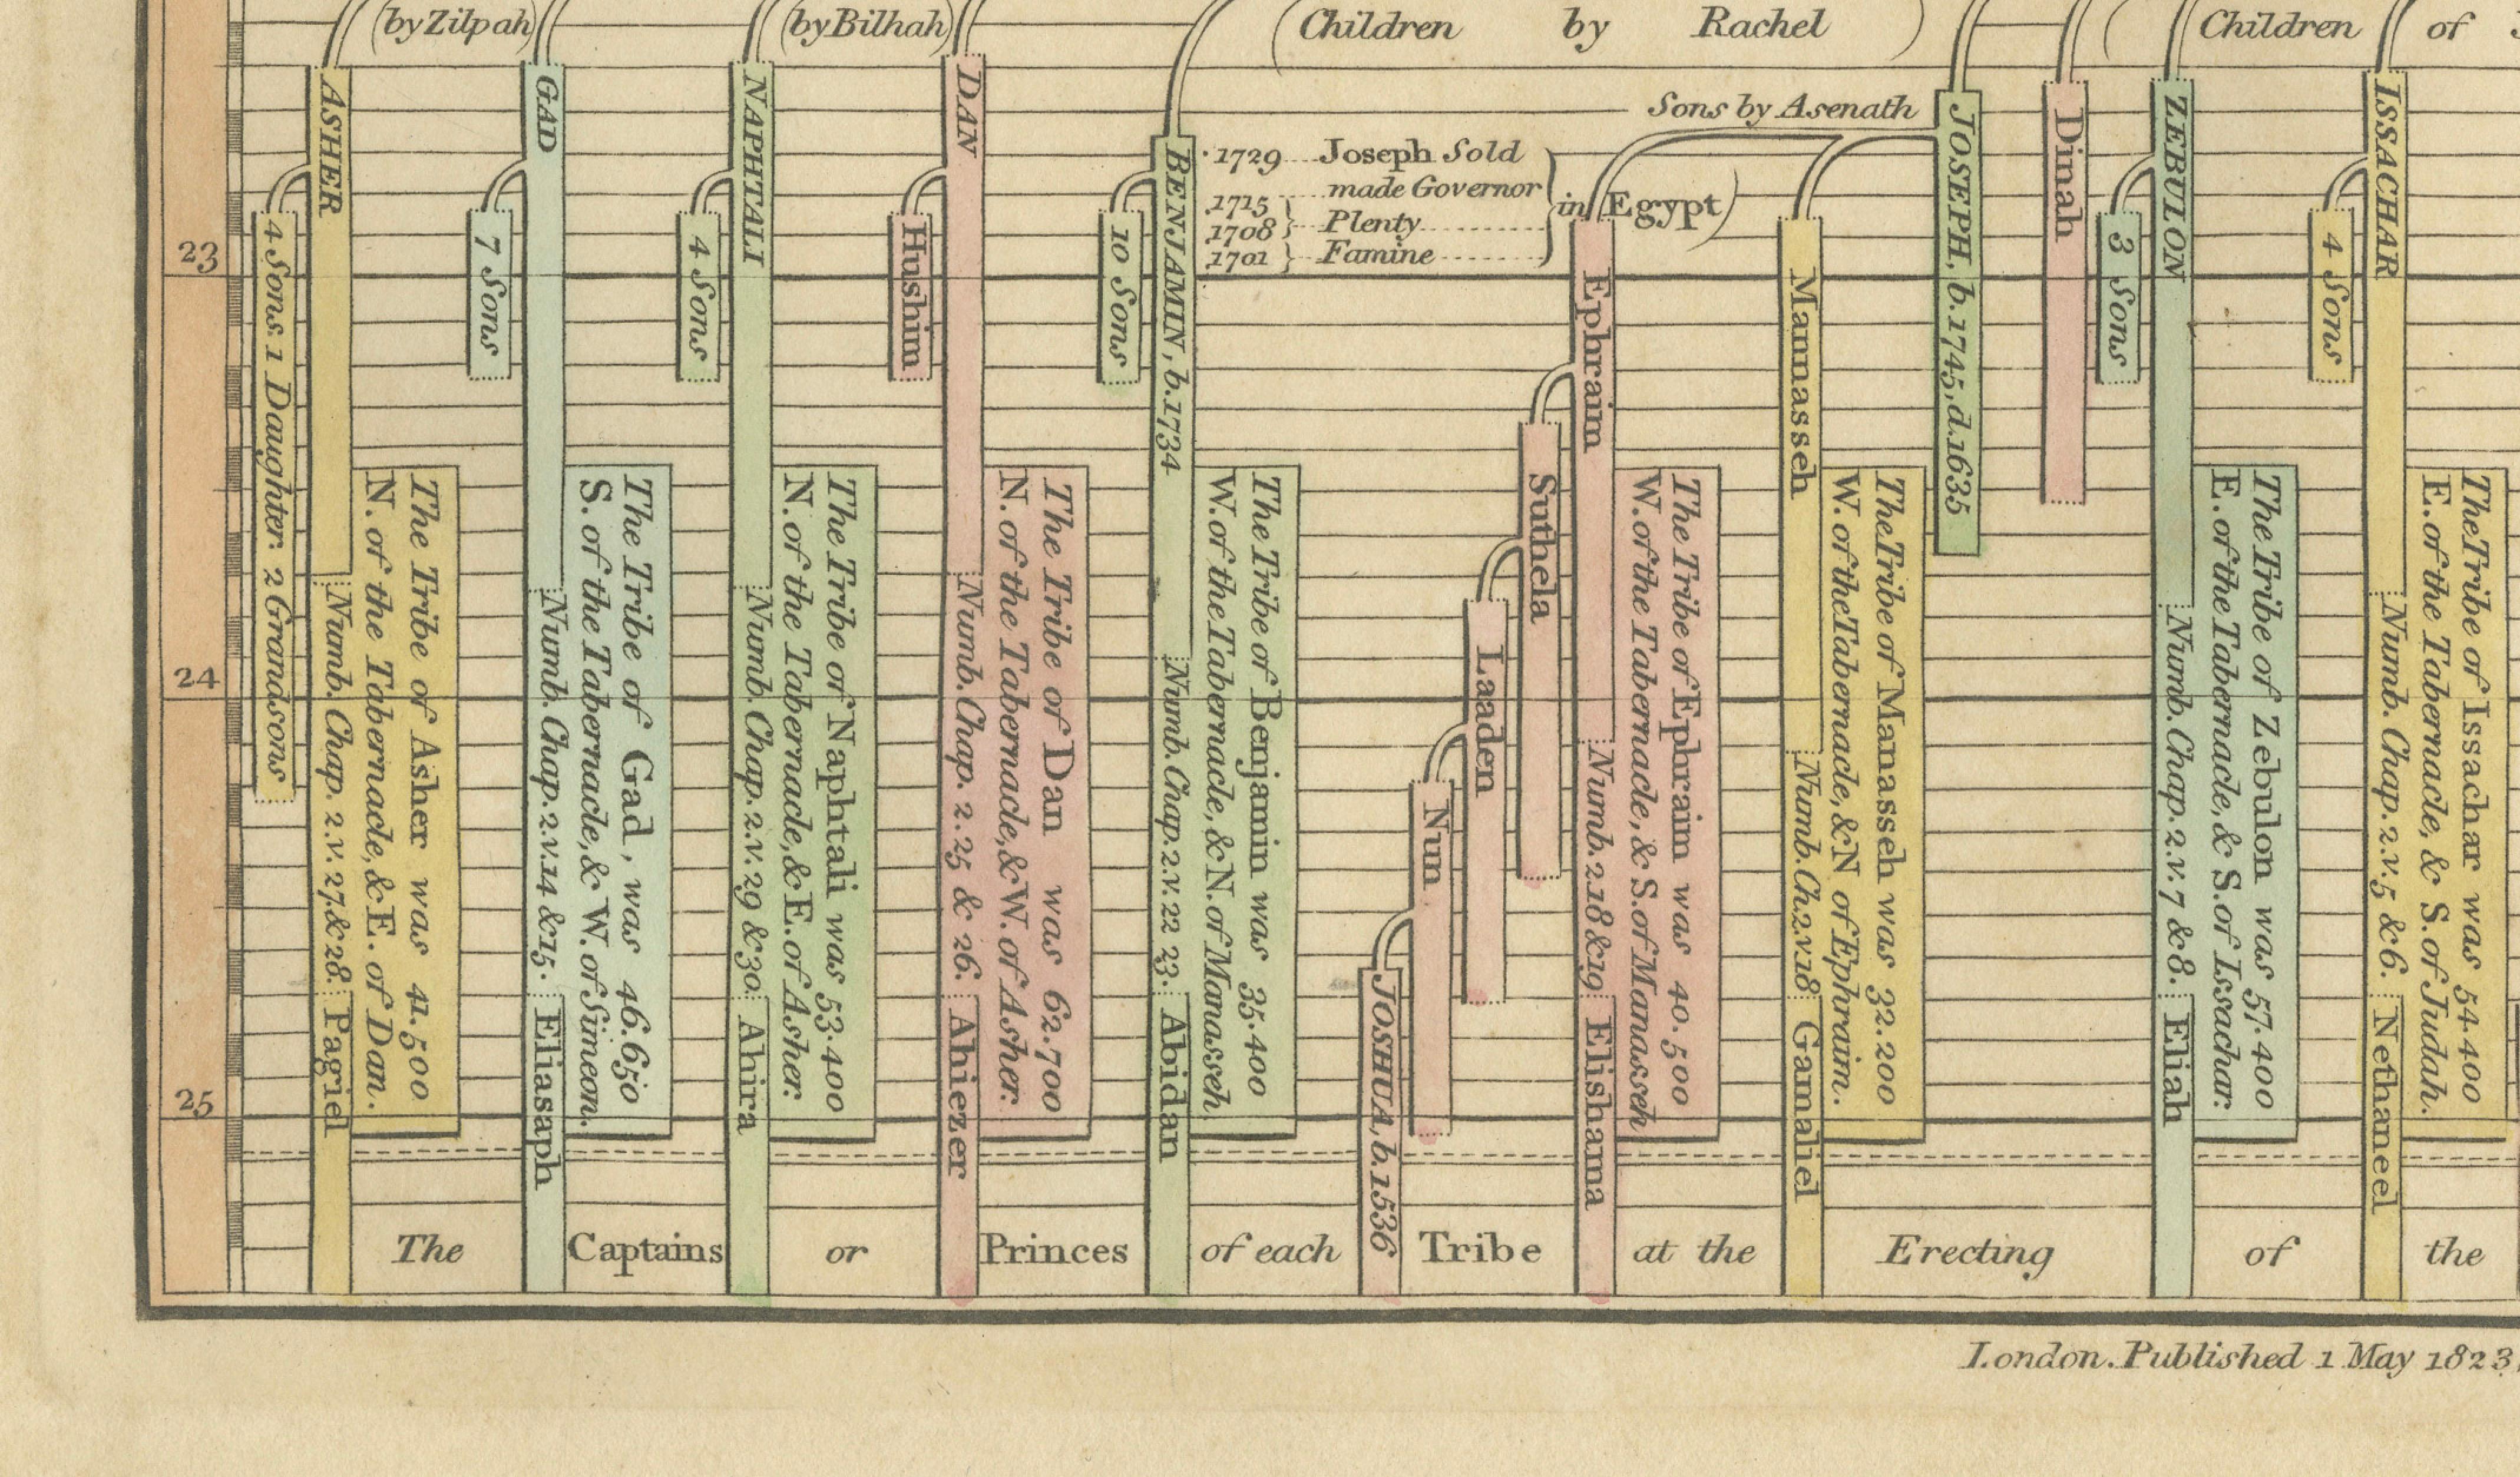 (by Zilpah)
(by Bilhah)
(Children by Rachel)
(Children of
ASHER
GAD
NAPHTALI
DAN
BENJAMIN, b.1734
Sons by Asenath
JOSEPH, b.1745, d.1635
Dinah
ZEBULON
ISSACHAR
1729 Joseph Sold
made Governor
in Egypt)
1715
1708 Plenty
1701 Famine
23
4 Sons 1 Daughter 2 Grandsons
7 Sons
4 Sons
Hushim
10 Sons
Ephraim
Mannasseh
3 Sons
4 Sons
Suthela
Laaden
Nun
JOSHUA, b.1536
24
The Tribe of Asher was 41.500
N. of the Tabernacle, & E. of Dan.
Numb. Chap. 2. v. 27. & 28.
Pagiel
The Tribe of Gad, was 46.650
S. of the Tabernacle, & W. of Simeon.
Numb. Chap. 2. v. 14 & 15.
Eliasaph
The Tribe of Naphtali was 53.400
N. of the Tabernacle, & E. of Asher.
Numb. Chap. 2. v. 29 & 30.
Ahira
The Tribe of Dan was 62.700
N. of the Tabernacle, & W. of Asher.
Numb. Chap. 2. 25 & 26.
Ahiezer
The Tribe of Benjamin was 35.400
W. of the Tabernacle, & N. of Manasseh
Numb. Chap. 2. v. 22 23.
Abidan
The Tribe of Ephraim was 40.500
W. of the Tabernacle, & S. of Manasseh
Numb. 2. 18 & 19
Elishama
The Tribe of Manasseh was 32.200
W. of the Tabernacle, & N of Ephraim.
Numb. Ch. 2. v. 18
Gamaliel
The Tribe of Zebulon was 57.400
E. of the Tabernacle, & S. of Issachar.
Numb. Chap. 2. v. 7 & 8.
Eliab
The Tribe of Issachar was 54.400
E. of the Tabernacle, & S. of Judah.
Numb. Chap. 2. v. 5 & 6.
Nethaneel
25
The Captains or Princes of each Tribe at the Erecting of the
London. Published 1 May 1823,